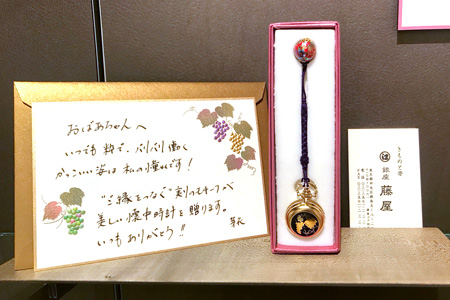 おばあちゃんへ
いつでも粋で、バリバリ働く
かっこいい姿は私の憧れです！
"ご縁をつなぐ"刻のモチーフへ
美しい懐中時計を贈ります。
いつもありがとう!!
きものと帯
銀座 藤屋